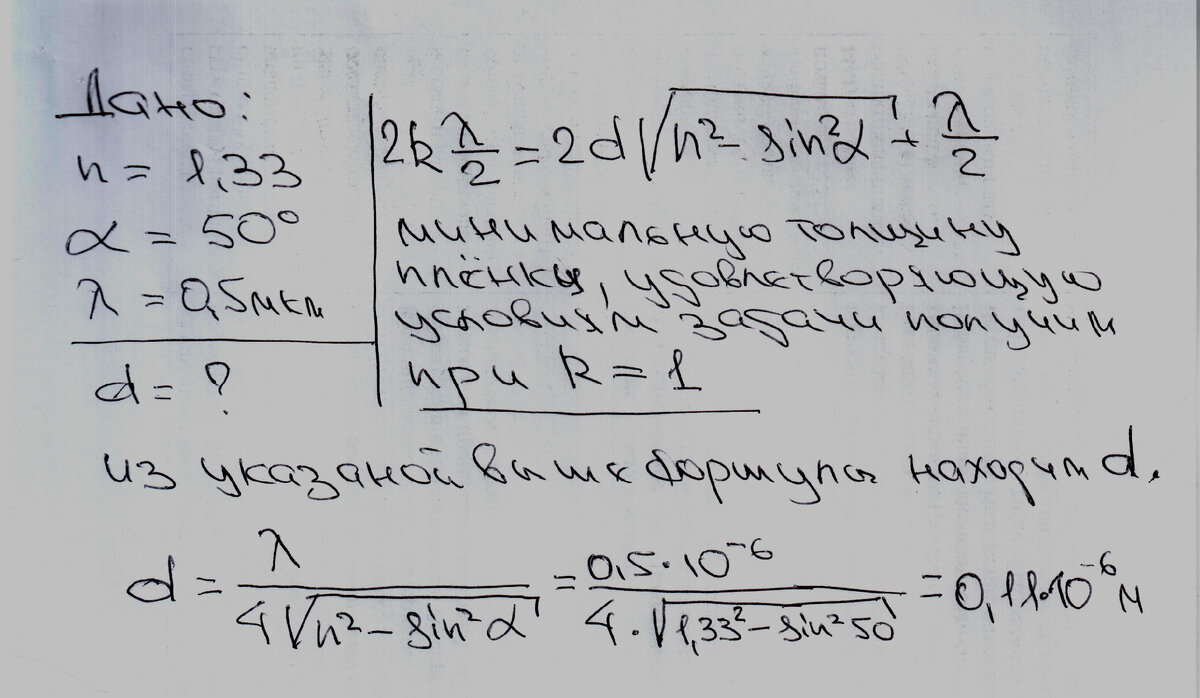 Дано:
n = 1,33
α = 50°
λ = 0,5 мкм
d = ?
2k λ/2 = 2d√(n² - sin²α) + λ/2
минимальную толщину
плёнки, удовлетворяющую
условиям задачи получим
при k = 1
из указаной выше формулы находим d.
d = λ/(4√(n² - sin²α)) = 0,5·10⁻⁶/(4·√(1,33² - sin²50)) = 0,11·10⁻⁶ м